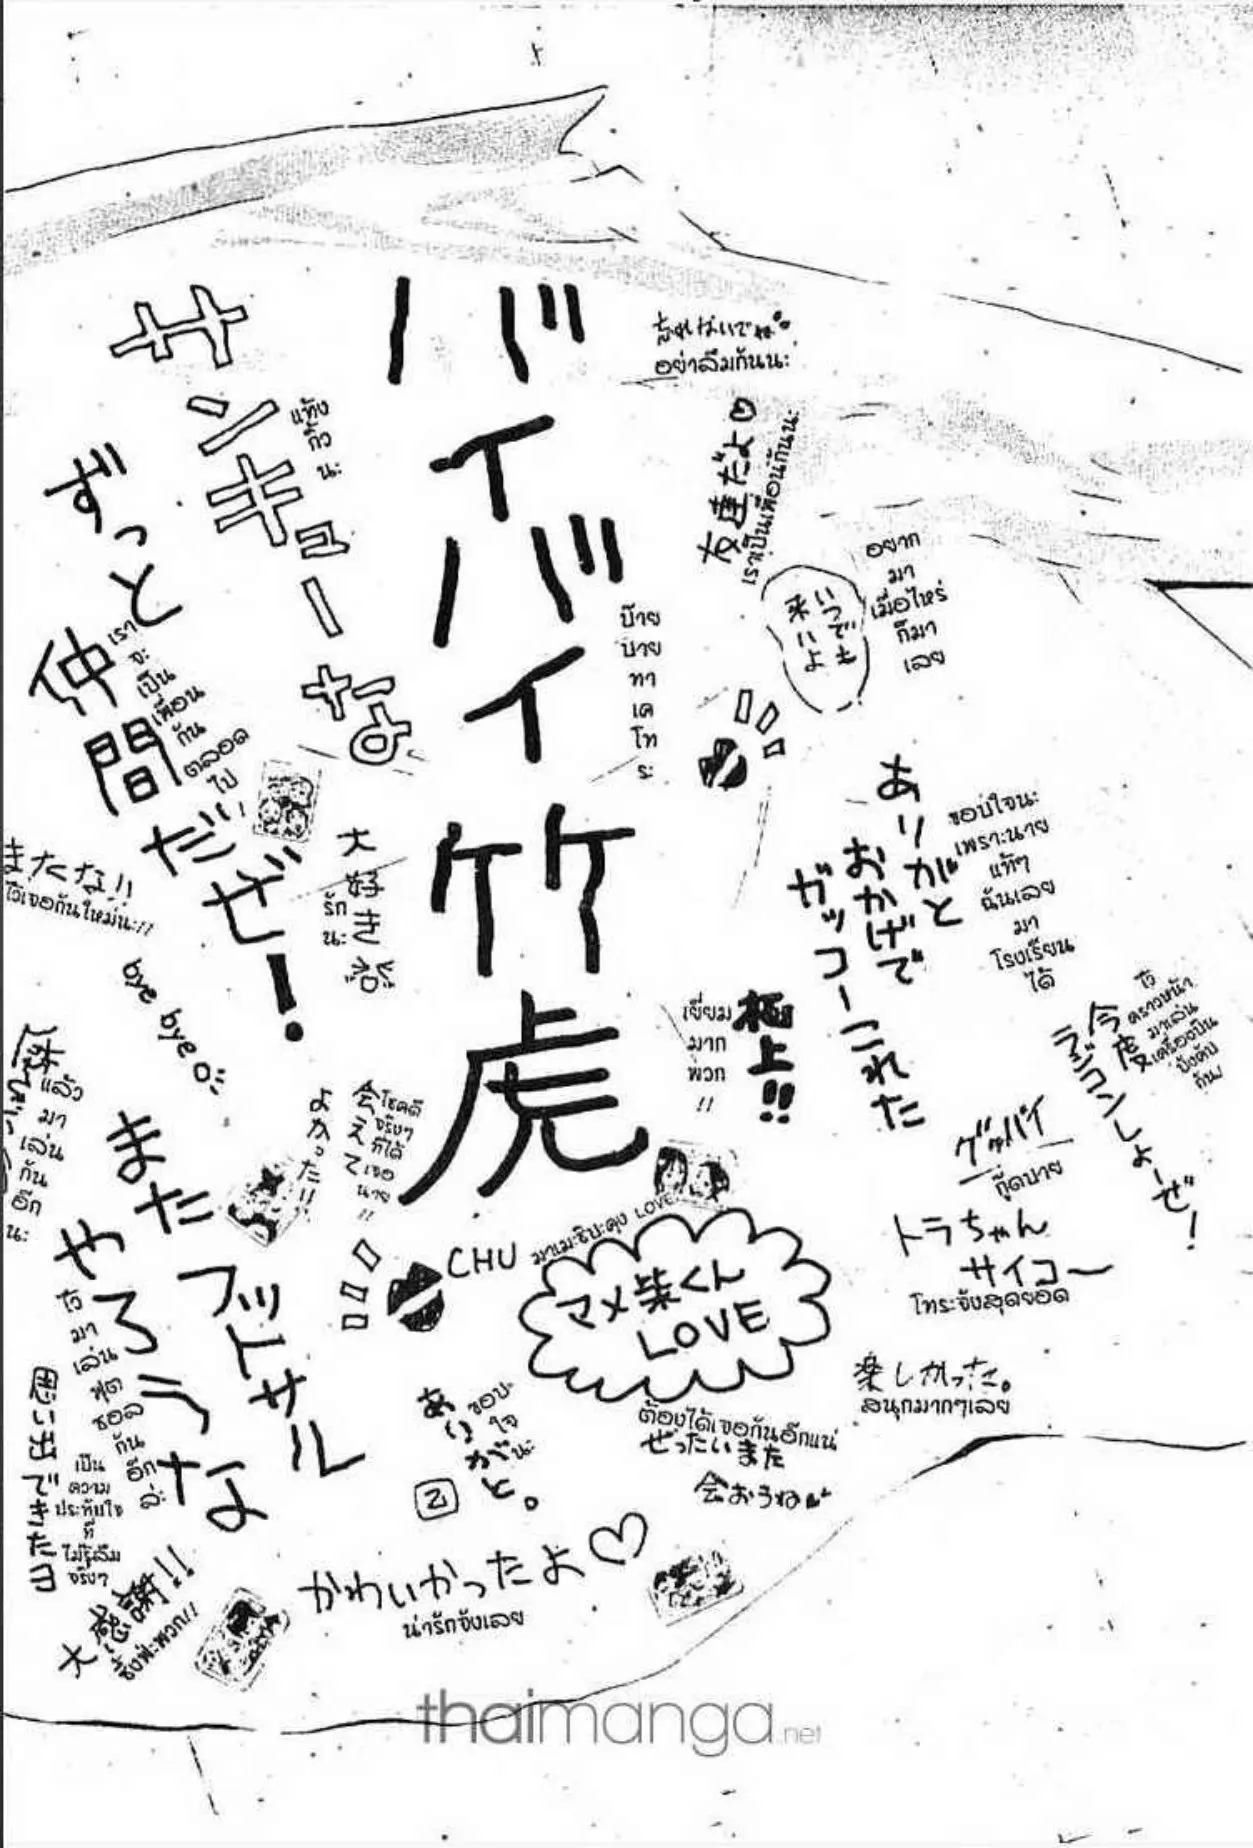 バイバイ竹虎
บ๊ายบายทาเคโทระ
サンキューな
แท้งกิ้วนะ
ずっと仲間だぜ!
เราจะเป็นเพื่อนกันตลอดไป!
忘れないでね
อย่าลืมกันนะ
友達だよ♡
เราเป็นเพื่อนกันนะ
いつでも
来いよ
อยากมาเมื่อไหร่ก็มาเลย
ありがと
おかげで
ガッコーこれた
ขอบใจนะ
เพราะนาย
แท้ๆ
ฉันเลย
มา
โรงเรียน
ได้
今度
ラジコンしよーぜ!
ไว้
คราวหน้า
มาเล่น
เครื่องบิน
บังคับ
กัน
極上!!
เยี่ยมมากพวก!!
大好き
รักนะ
またな!!
ไว้เจอกันใหม่นะ!!
bye bye
แล้วมาเล่นกันอีกนะ
会えて
よかった!!
โชคดีจริงๆที่ได้เจอนาย!!
また
フットサル
やろうな
ไว้มาเล่นฟุตซอลกันอีกล่ะ
グッバイ
กู๊ดบาย
トラちゃん
サイコー
โทระจังสุดยอด
CHU
มาเมะชิบะคุง LOVE
マメ柴くん
LOVE
楽しかった。
สนุกมากๆเลย
ありがと。
ขอบใจนะ
ต้องได้เจอกันอีกแน่
ぜったいまた
会おうね
思い出できたヨ
เป็นความประทับใจที่ไม่รู้ลืมจริงๆ
大感謝!!
かわいかったよ♡
น่ารักจังเลย
thaimanga.net